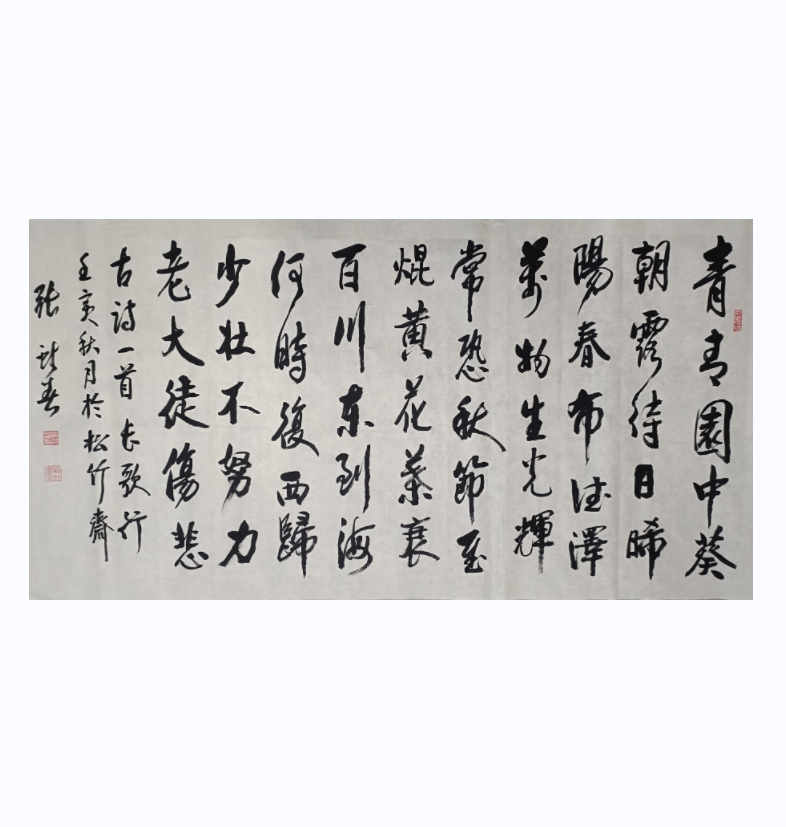 青青園中葵
朝露待日晞
陽春布德澤
萬物生光輝
常恐秋節至
焜黄花葉衰
百川東到海
何時復西歸
少壯不努力
老大徒傷悲
古詩一首 长歌行
秋月於松竹齋
張 春